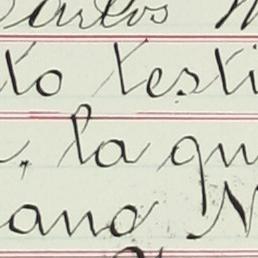 Carlos
to testi
, la qu
ano N